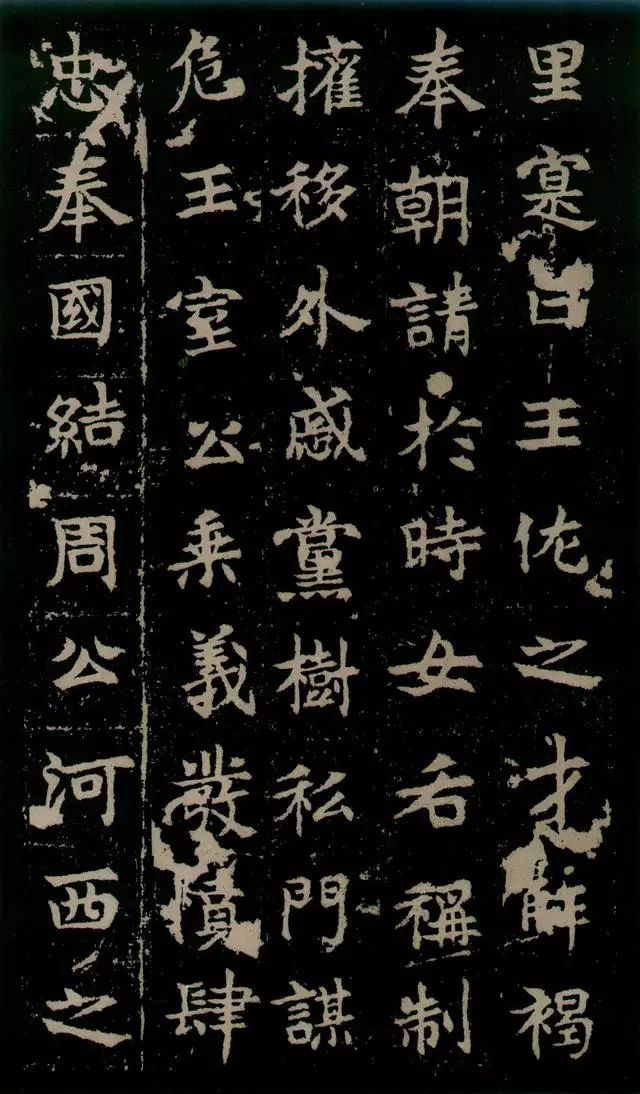 里寔曰王佐之才解褐
奉朝請於時女后稱制
擁移外戚黨樹私門謀
危王室公乗義發憤肆
忠奉國結周公河西之